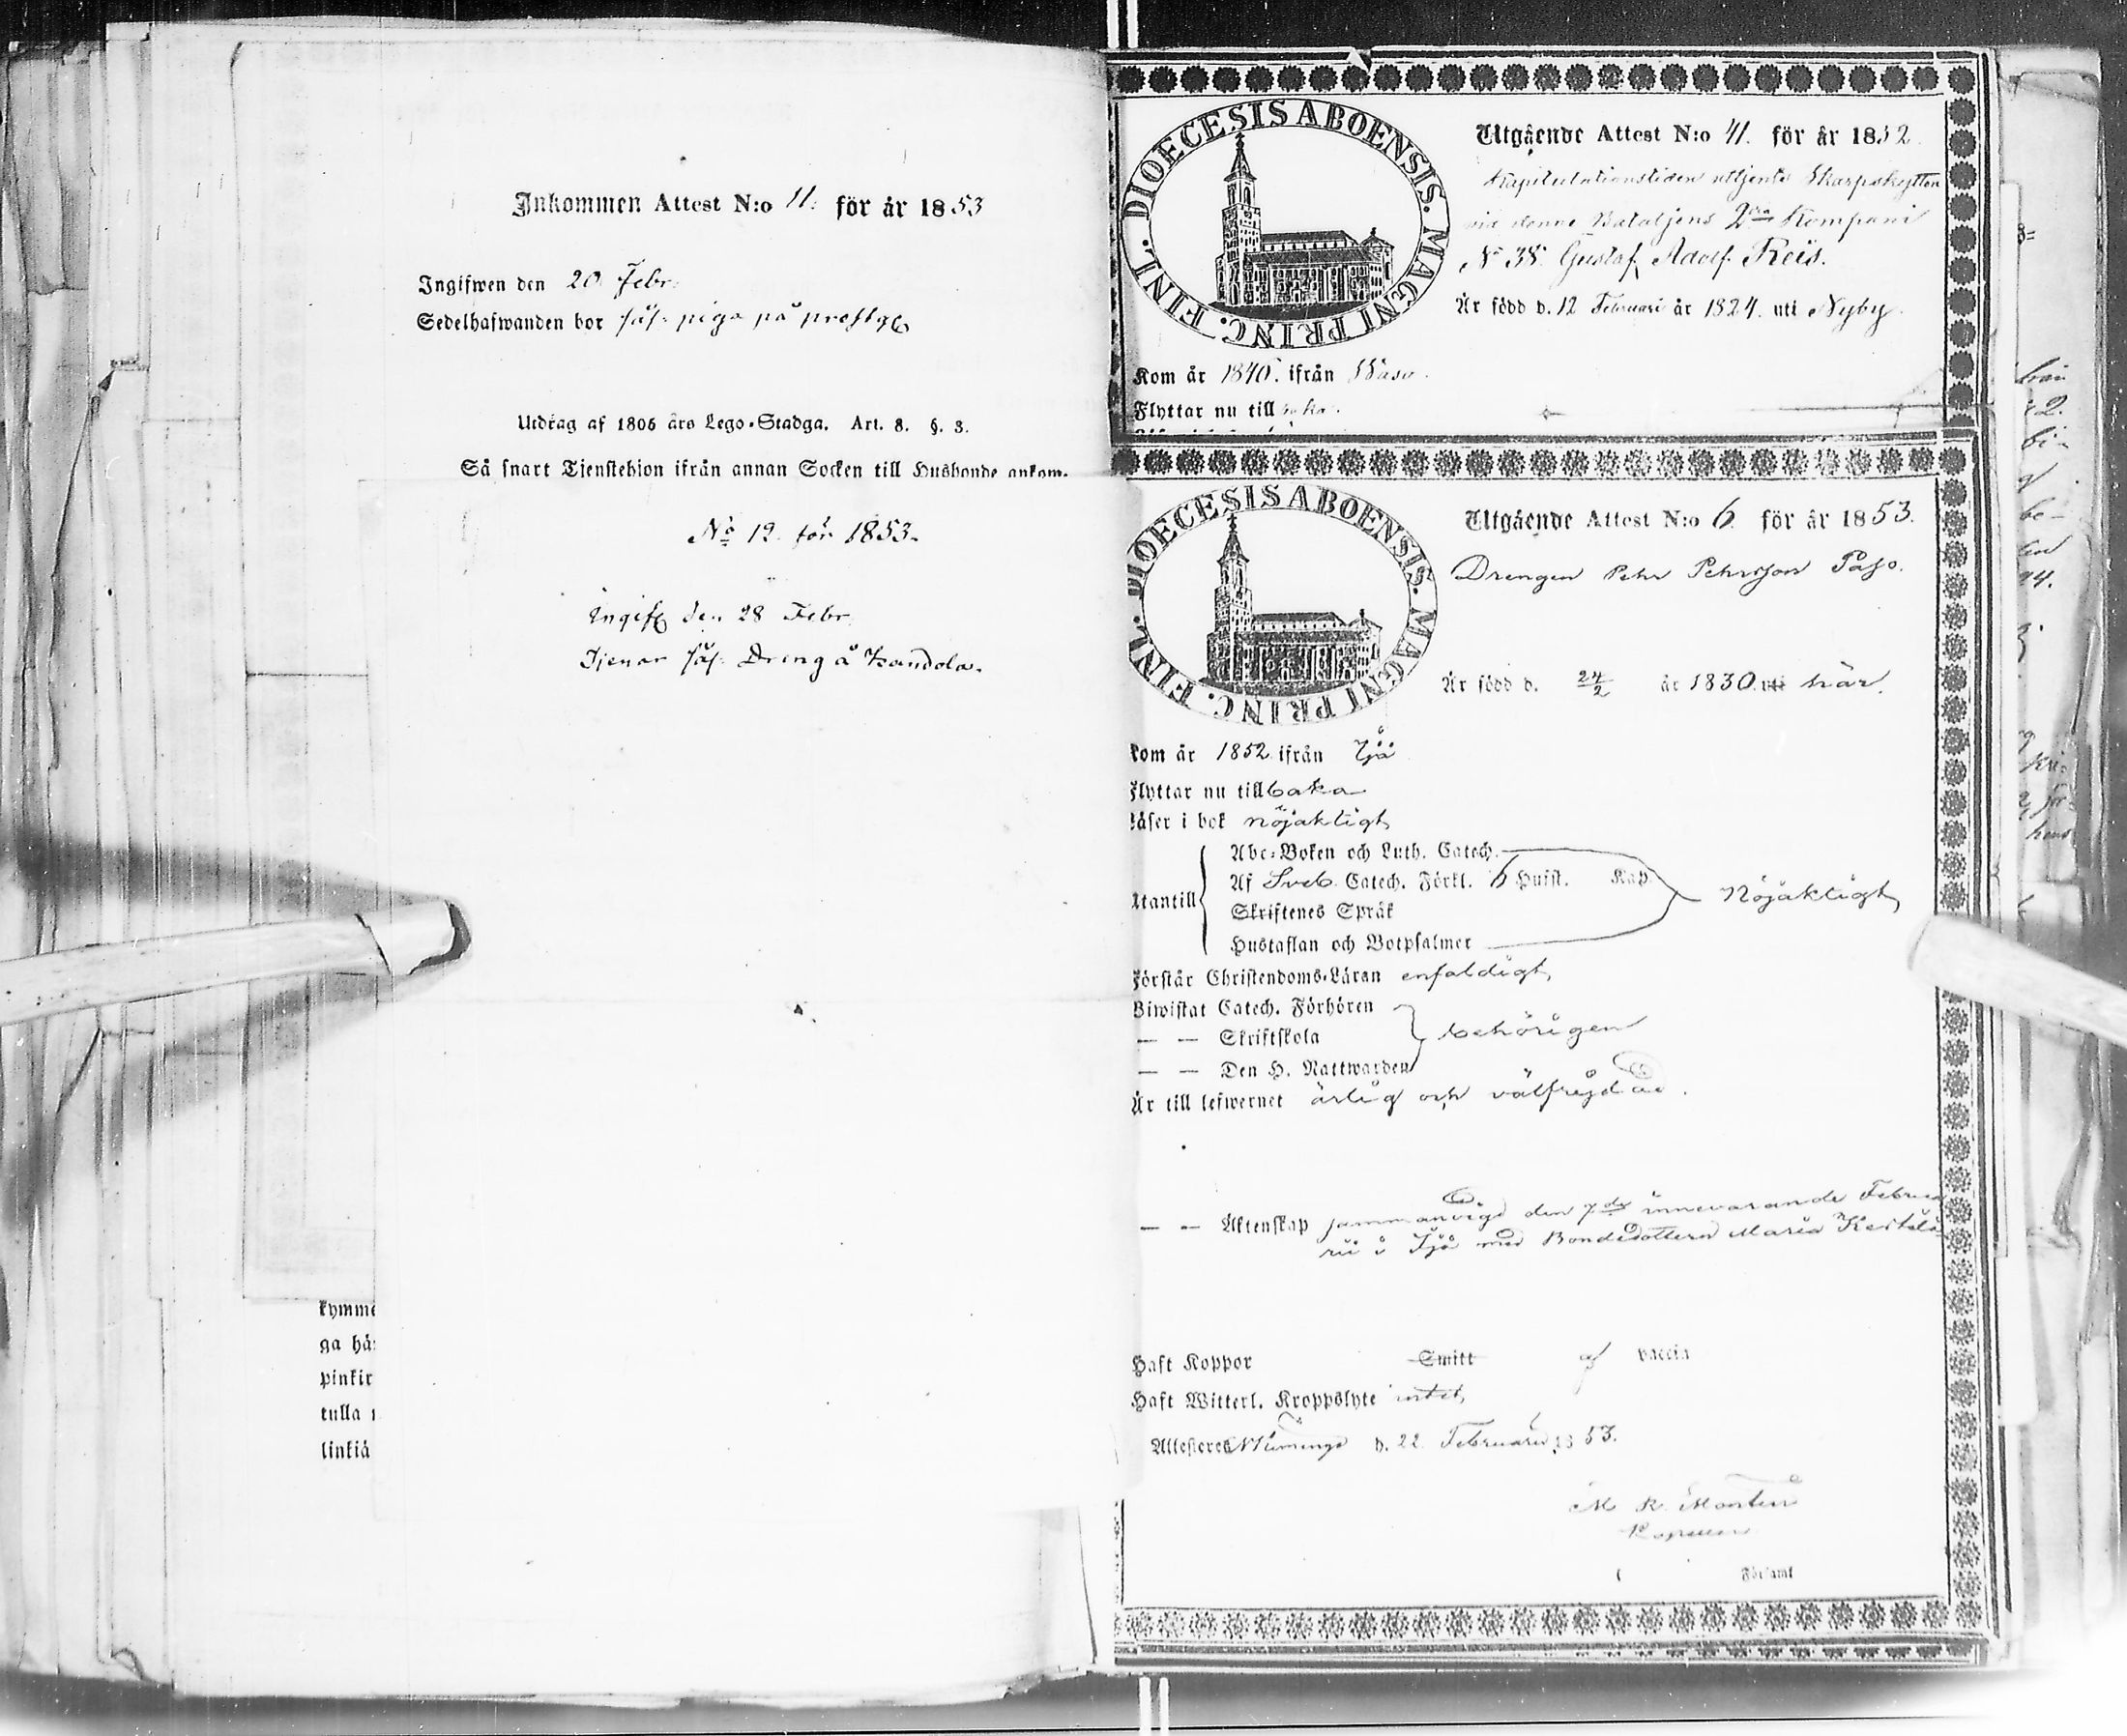 Inkommen Attest N:o 11. för år 1853
Ingifwen den 20 Febr.
Sedelhafwanden bor såf. piga på prestg
Utdrag af 1805 års Lego-Stadga. Art. 8. §. 3.
Så snart Tjenstehion ifrån annan Socken till Husbonde ankom-
No 12. för 1853.
Ingif den 28 Febr.
Tjenar såf. Dreng å
kymme
ga hä
pinkir
tulla
linkiä
DIOECESIS ABOENSIS. MAGNI PRINC. FINL.
Utgående Attest N:o 11. för år 1852.
Kapitulationstiden uttjente Skarpskytten
vid denne Bataljons 2dra Kompani
No 38. Gustaf Adolf Freis.
Är född d. 12 Februari år 1824. uti Nyby.
Kom år 1846. ifrån Wasa.
Flyttar nu till
DIOECESIS ABOENSIS. MAGNI PRINC. FINL.
Utgående Attest N:o 6 för år 1853.
Drengen Pehr Pehrsson Paso.
Är född d. 24/2 år 1830. uti här.
Kom år 1852 ifrån Ijå
Flyttar nu tillbaka
Läser i bok nöjaktigt
Utantill
Abc-Boken och Luth. Catech.
Af Sveb. Catech. Förkl. 6 Hufst. Kap.
Skriftenes Språk
Hustaflan och Botpsalmer
Nöjaktigt
Förstår Christendoms-Läran enfaldigt
Biwistat Catech. Förhören
— — Skriftskola
— — Den H. Nattwarden
behörigen
Är till lefwernet ärlig och välfrejdad.
— — Äktenskap sammanvigd den 7de innevarande Februa
rii i Ijå med Bondedottern Maria
Haft Koppor Smitt af vaccin
Haft Witterl. Kroppslyte intet
Attesteras d. 22 Februarii 1853.
Kapellan
Församl